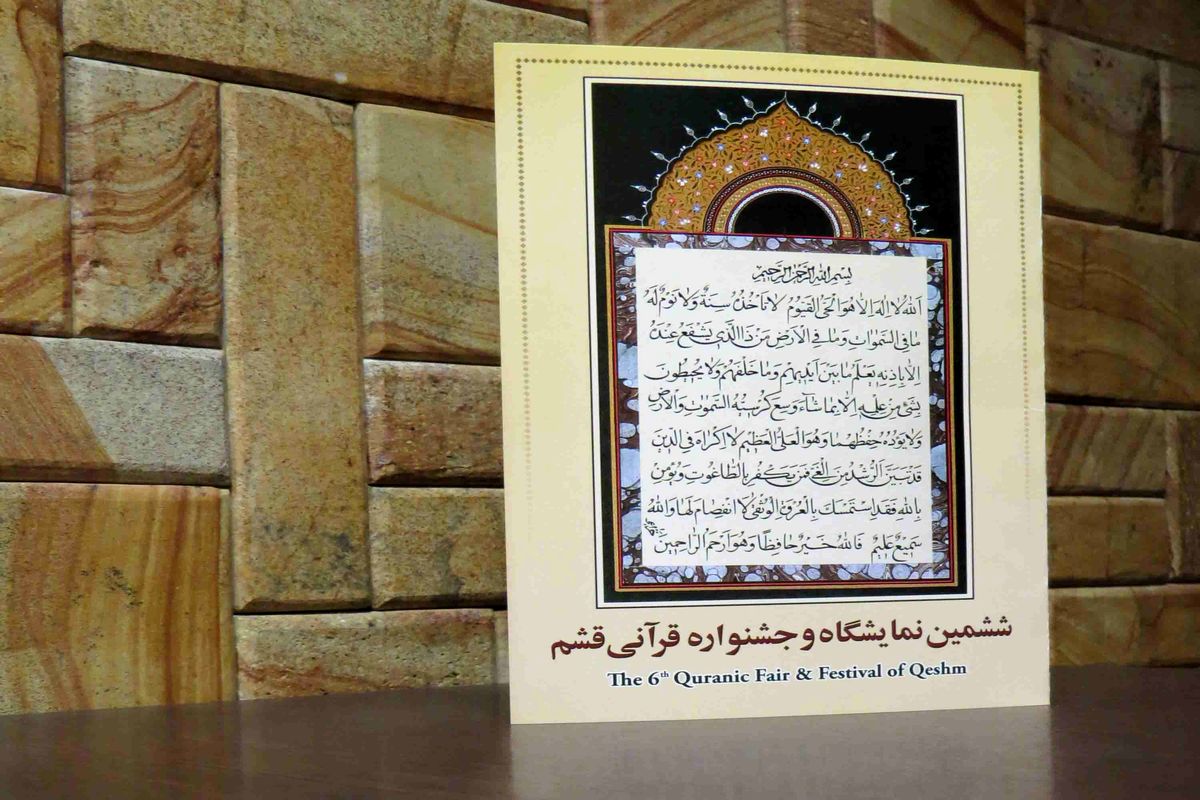 بسم الله الرحمن الرحیم
اَللهُ لا اِلهَ اِلاّ هُوَ الْحَیُّ الْقَیُّومُ لا تَأخُذُهُ سِنَةٌ وَلا نَوْمٌ لَهُ
ما فِی السَّمواتِ وَما فِی الْاَرْضِ مَنْ ذَا الَّذی یَشْفَعُ عِنْدَهُ
اِلاّ بِاِذْنِهِ یَعْلَمُ ما بَیْنَ اَیْدیهِمْ وَما خَلْفَهُمْ وَلا یُحیطُونَ
بِشَیْءٍ مِنْ عِلْمِهِ اِلاّ بِما شاءَ وَسِعَ کُرْسِیُّهُ السَّمواتِ وَالْاَرْضَ
وَلا یَؤُدُهُ حِفْظُهُما وَهُوَ الْعَلِیُّ الْعَظیمُ لا اِکْراهَ فِی الدّینِ
قَدْ تَبَیَّنَ الرُّشْدُ مِنَ الْغَیِّ فَمَنْ یَکْفُرْ بِالطّاغُوتِ وَیُؤْمِنْ
بِاللهِ فَقَدِ اسْتَمْسَکَ بِالْعُرْوَةِ الْوُثْقی لَا انْفِصامَ لَها وَاللهُ
سَمیعٌ عَلیمٌ فَاللهُ خَیْرٌ حافِظًا وَهُوَ اَرْحَمُ الرّاحِمینَ
ششمین نمایشگاه و جشنواره قرآنی قشم
The 6th Quranic Fair & Festival of Qeshm